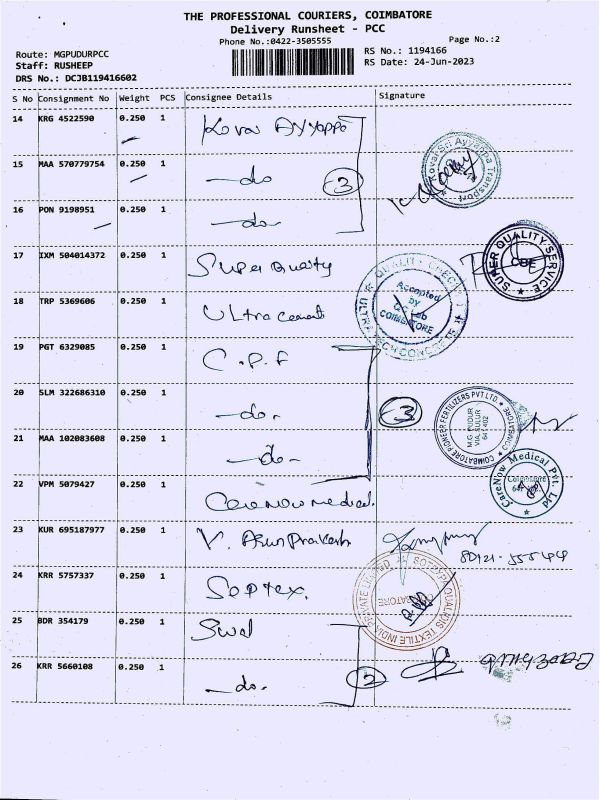 THE PROFESSIONAL COURIERS, COIMBATORE
Delivery Runsheet - PCC
Phone No.:0422-3505555
Page No.:2
Route: MGPUDURPCC
RS No.: 1194166
Staff: RUSHEEP
RS Date: 24-Jun-2023
DRS No.: DCJB119416602
S No Consignment No Weight PCS Consignee Details Signature
14 KRG 4522590 0.250 1 Kovai Ayyappa
Kovai Sri Ayyappa Transport
15 MAA 570779754 0.250 1 -do 3
16 PON 9198951 0.250 1 -do-
17 IXM 504014372 0.250 1 Super Quality
SUPER QUALITY SERVICE
CBE
18 TRP 5369606 0.250 1 Ultra cement
QUALITY CHECK
Accepted
by
QC Lab
COIMBATORE
ULTRA TECH CONCRETE
19 PGT 6329085 0.250 1 C.P.F
20 SLM 322686310 0.250 1 -do- 3
COIMBATORE PIONEER FERTILIZERS PVT LTD.
M.G. PUDUR
VIA, SULUR
641 402
COIMBATORE
21 MAA 102083608 0.250 1 -do-
22 VPM 5079427 0.250 1 Carenow medical.
CareNow Medical Pvt. Ltd
Coimbatore
23 KUR 695187977 0.250 1 V. Arun Prakash
24 KRR 5757337 0.250 1 Soptex.
TEXTILE INDIA PRIVATE LIMITED
COIMBATORE
25 BDR 354179 0.250 1
26 KRR 5660108 0.250 1 -do- 2